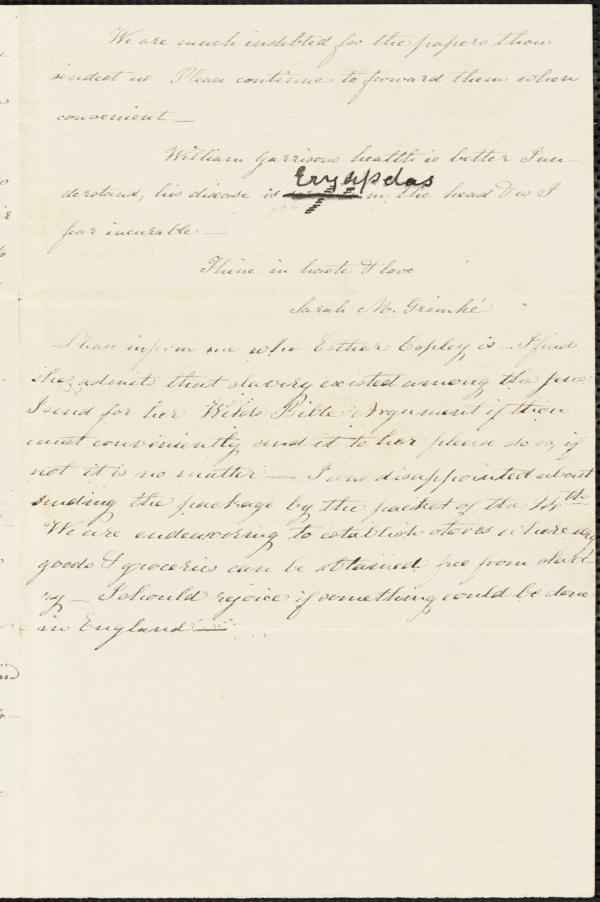 We are much indebted for the papers thou
sendest us Please continue to forward them when
convenient —
William Garrisons health is better I un-
derstand, his disease is Erysipelas in the head & is I
fear incurable —
Thine in haste & love
Sarah M. Grimké
Please inform me who Esther Copley is — I find
she admits that slavery existed among the Jews
I send for her Welds Bible Argument if thou
canst conveniently send it to her please do so, if
not it is no matter — I was disappointed about
sending the package by the packet of the
We are endeavoring to establish stores where dry
goods & groceries can be obtained free from slave-
ry — I should rejoice if something could be done
in England —